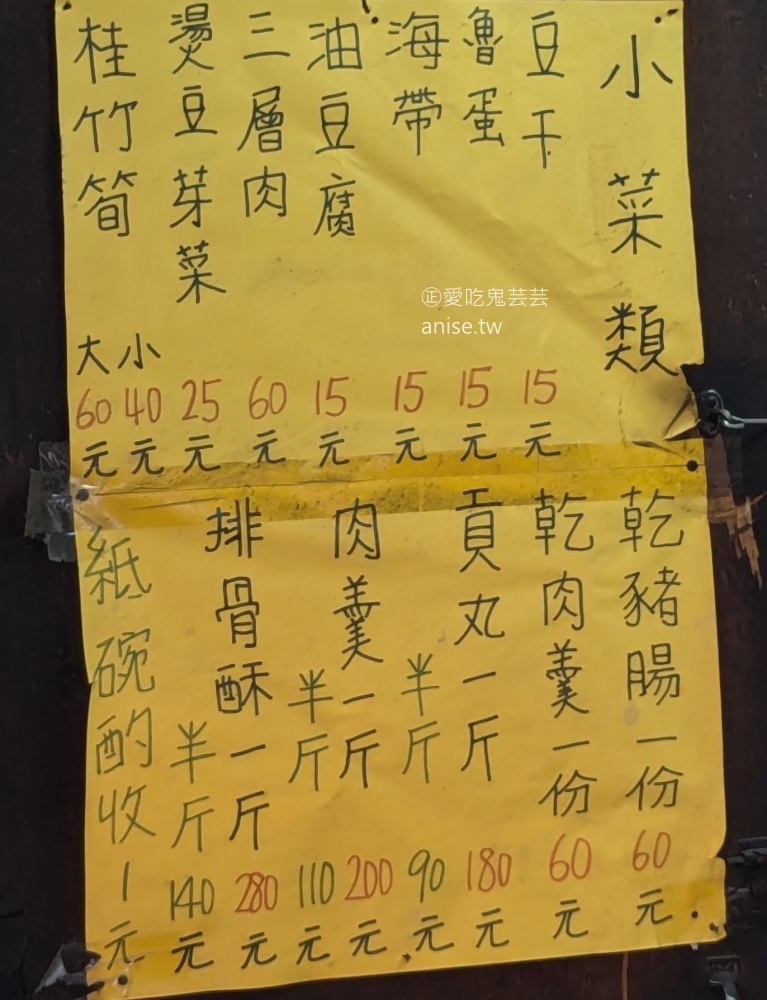 小菜類
豆干 15元
魯蛋 15元
海帶 15元
油豆腐 15元
三層肉 60元
燙豆芽菜 25元
桂竹筍 小40元 大60元
乾豬腸一份 60元
乾肉羹一份 60元
貢丸一斤 180元
半斤 90元
肉羹一斤 200元
半斤 110元
排骨酥一斤 280元
半斤 140元
紙碗酌收1元
㊣愛吃鬼芸芸
anise.tw